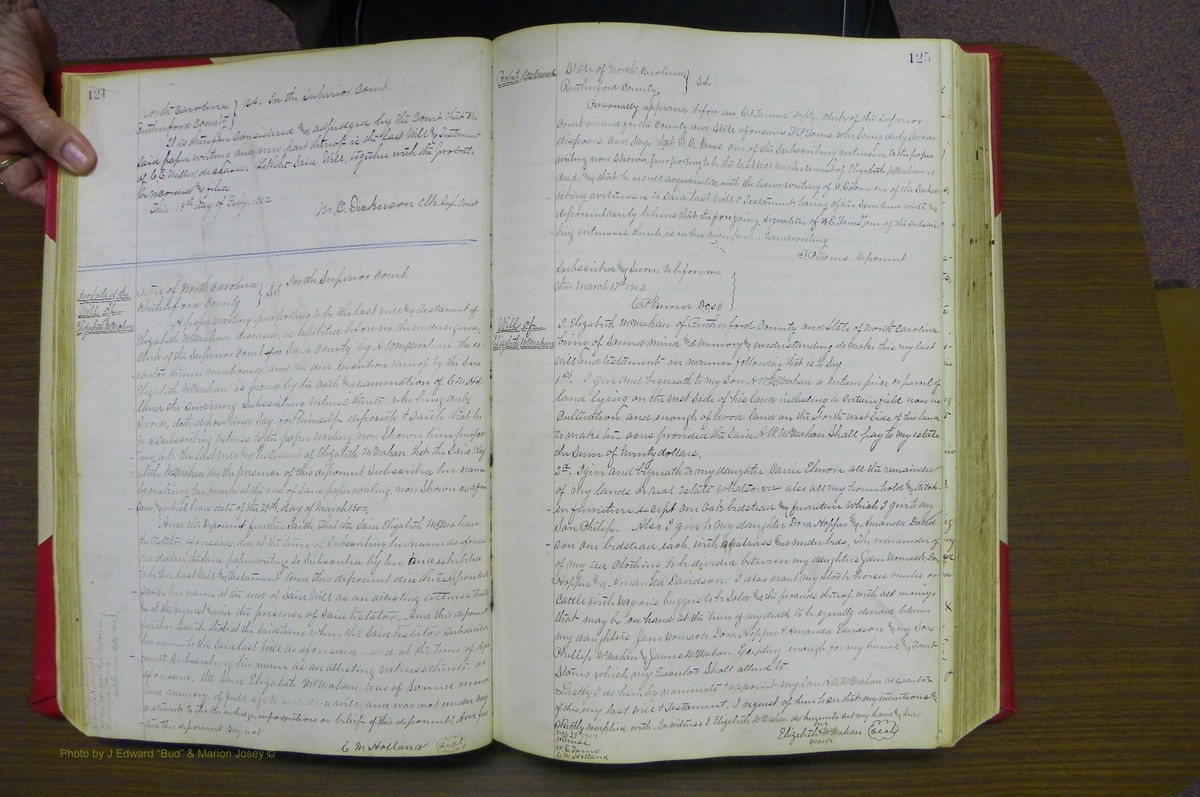 124
North Carolina } SS. In the Superior Court
Rutherford County }
It is therefore considered & adjudged by the Court that the
said paper writing and every part thereof is the last Will & Testament
of C. E. deceased. Let the said Will, together with the probate
be recorded & filed
This, 18th day of Feby. 1902
M. O. Dickerson Clk. Sup. Court
Probate of the
Will of
Elizabeth McMahan
State of North Carolina } SS In the Superior Court
Rutherford County }
A paper writing purporting to be the last will & Testament of
Elizabeth McMahan deceased, is exhibited before me the undersigned,
Clerk of the Superior Court for said County, by A W McMahan the ex-
ecutor therein mentioned and the due execution thereof by the said
Elizabeth McMahan is proved by the oath & examination of C. M. Hol-
land the Subscribing witness thereto who being duly
sworn, doth depose and say for himself deposeth & saith that he
is a subscribing witness to the paper writing now shown him purpor-
ting to be the last will and Testament of Elizabeth McMahan that the said Eliz-
abeth McMahan in the presence of this deponent subscribed her name
by making her mark at the end of said paper writing, now shown as afore-
said & which bears date of the 29th day of March
And the Deponent further saith That the said Elizabeth McMahan
the testator aforesaid, did at the time of subscribing her name as afore-
said declare the paper so subscribed by her and exhibited
to be her last Will & Testament and this deponent did thereupon sub-
scribe his name at the end of said will as an attesting witness thereto
& at the request & in the presence of said testator. And this deponent
further saith, that at the said time when the said testator subscribed
her name to the said last will as aforesaid and at the time of depo-
nent's subscribing his name as an attesting witness thereto as
aforesaid, the said Elizabeth McMahan was of sound mind
and memory of full age to execute a will and was not under any
restraint to the knowledge information or belief of this deponent; And fur-
ther this deponent say not
C M Holland (Seal)
125
Probate Continued
State of North Carolina } SS.
Rutherford County, }
Personally appeared before me C P Tanner Depty. clerk of the Superior
Court in and for the County and State aforesaid J P Toms who being duly sworn
disposes and says that W. E. Toms one of the subscribing witnesses to the paper
writing now shown, purporting to be the last will and testament of Elizabeth McMahan is
dead, & that he is well acquainted with the hand writing of W. E. Toms one of the subscri-
bing witnesses to said last will & Testament having often seen him write &
deponent verily believes that the foregoing signature of W. E. Toms one of the subscri-
bing witnesses thereto, is in his own proper handwriting
J P Toms deponent
Subscribed & Sworn to before me }
this March 17th 1902 }
C P Tanner DCSC }
Will of
Elizabeth McMahan
I, Elizabeth McMahan of Rutherford County and State of North Carolina
being of sound mind & Memory & understanding do make this my last
will and testament in manner following that is to say
1st. I give and bequeath to my son A W McMahan a certain piece or parcel of
land lying on the east side of his land including a certain field now in
cultivation and enough of wood land on the North west side of his land
to make ten acres provided the said A. W. McMahan shall pay to my estate
the sum of twenty dollars.
2nd. I give and bequeath to my daughter Carrie Elmore all the remainder
of my lands or real estate whatsoever also all my household & kitch-
en furniture except one oak bedstead & furniture which I give my
son Philip. Also I give to my daughter Dora Hopper & Amanda David-
son one bedstead each, with matrass and under beds, The remainder of
of my bed clothing to be divided between my daughters Jane Womack Dora
Hopper & Amanda Davidson. I also want my stock horse mules or
cattle with wagons buggies to be sold & the proceeds thereof with all moneys
that may be on hand at the time of my death to be equally divided between
my daughters Jane Womack Dora Hopper & Amanda Davidson & my sons
Phillip McMahan & James McMahan Excepting enough for my burial & Tomb
Stones which my Executor shall attend to
Lastly I do hereby nominate & appoint my son A. W. McMahan as executor
of this my last will & Testament, I request of him to see that my intentions be
strictly complied with. In witness I Elizabeth McMahan do hereunto set my hand & seal
Witness
W. E. Toms
C M Holland
her
Elizabeth X McMahan (Seal)
mark
Photo by J Edward "Bud" & Marion Josey ©